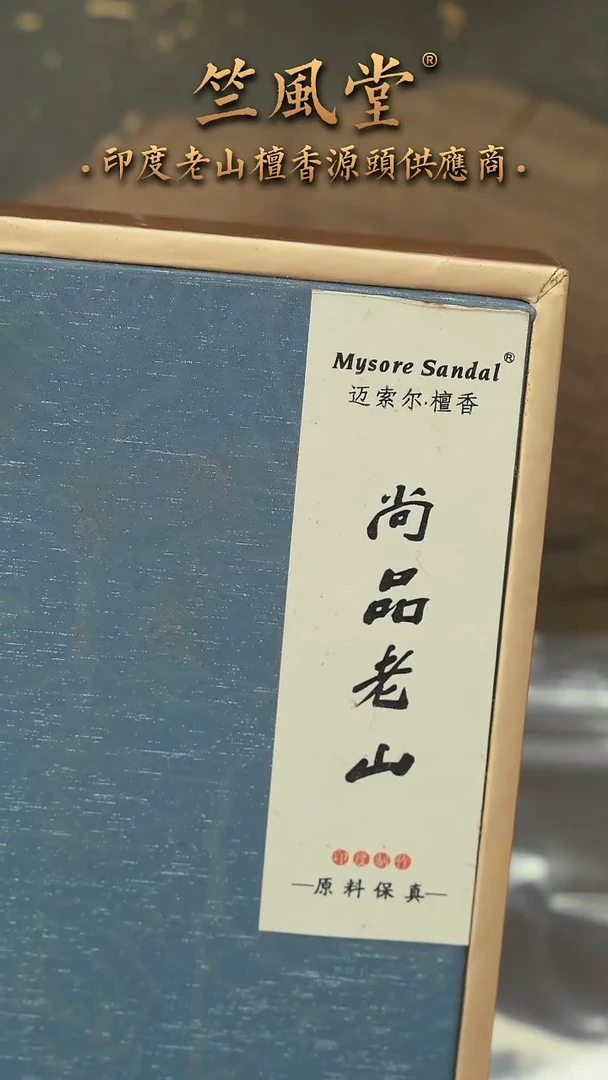 竺風堂®
·印度老山檀香源頭供應商·
Mysore Sandal®
迈索尔·檀香
尚品老山
印度制作
—原料保真—